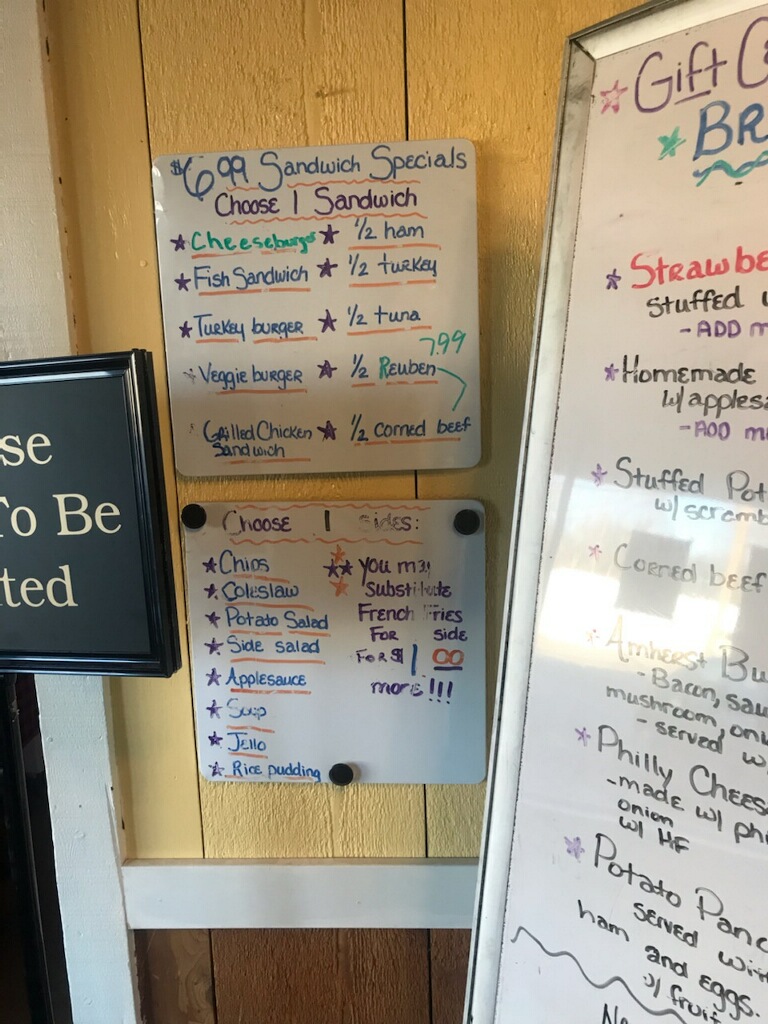 $6.99 Sandwich Specials
Choose 1 Sandwich
Cheeseburger
Fish Sandwich
Turkey burger
Veggie burger
Grilled Chicken
Sandwich
1/2 ham
1/2 turkey
1/2 tuna
7.99
1/2 Reuben
1/2 corned beef
Choose 1 sides:
Chips
Coleslaw
Potato Salad
Side salad
Applesauce
Soup
Jello
Rice pudding
You may
Substitute
French Fries
For side
For $1 00
more!!!
se
To Be
ted
Gift
BR
Strawbe
Stuffed
- ADD m
Homemade
w/ applesa
- ADD m
Stuffed Pot
w/ scramb
Corned beef
Amherst Bu
- Bacon, sau
mushroom, oni
- served w
Philly Chees
- made w/ phi
onion
w/ HF
Potato Panc
served wit
ham and eggs.
w/ fruit